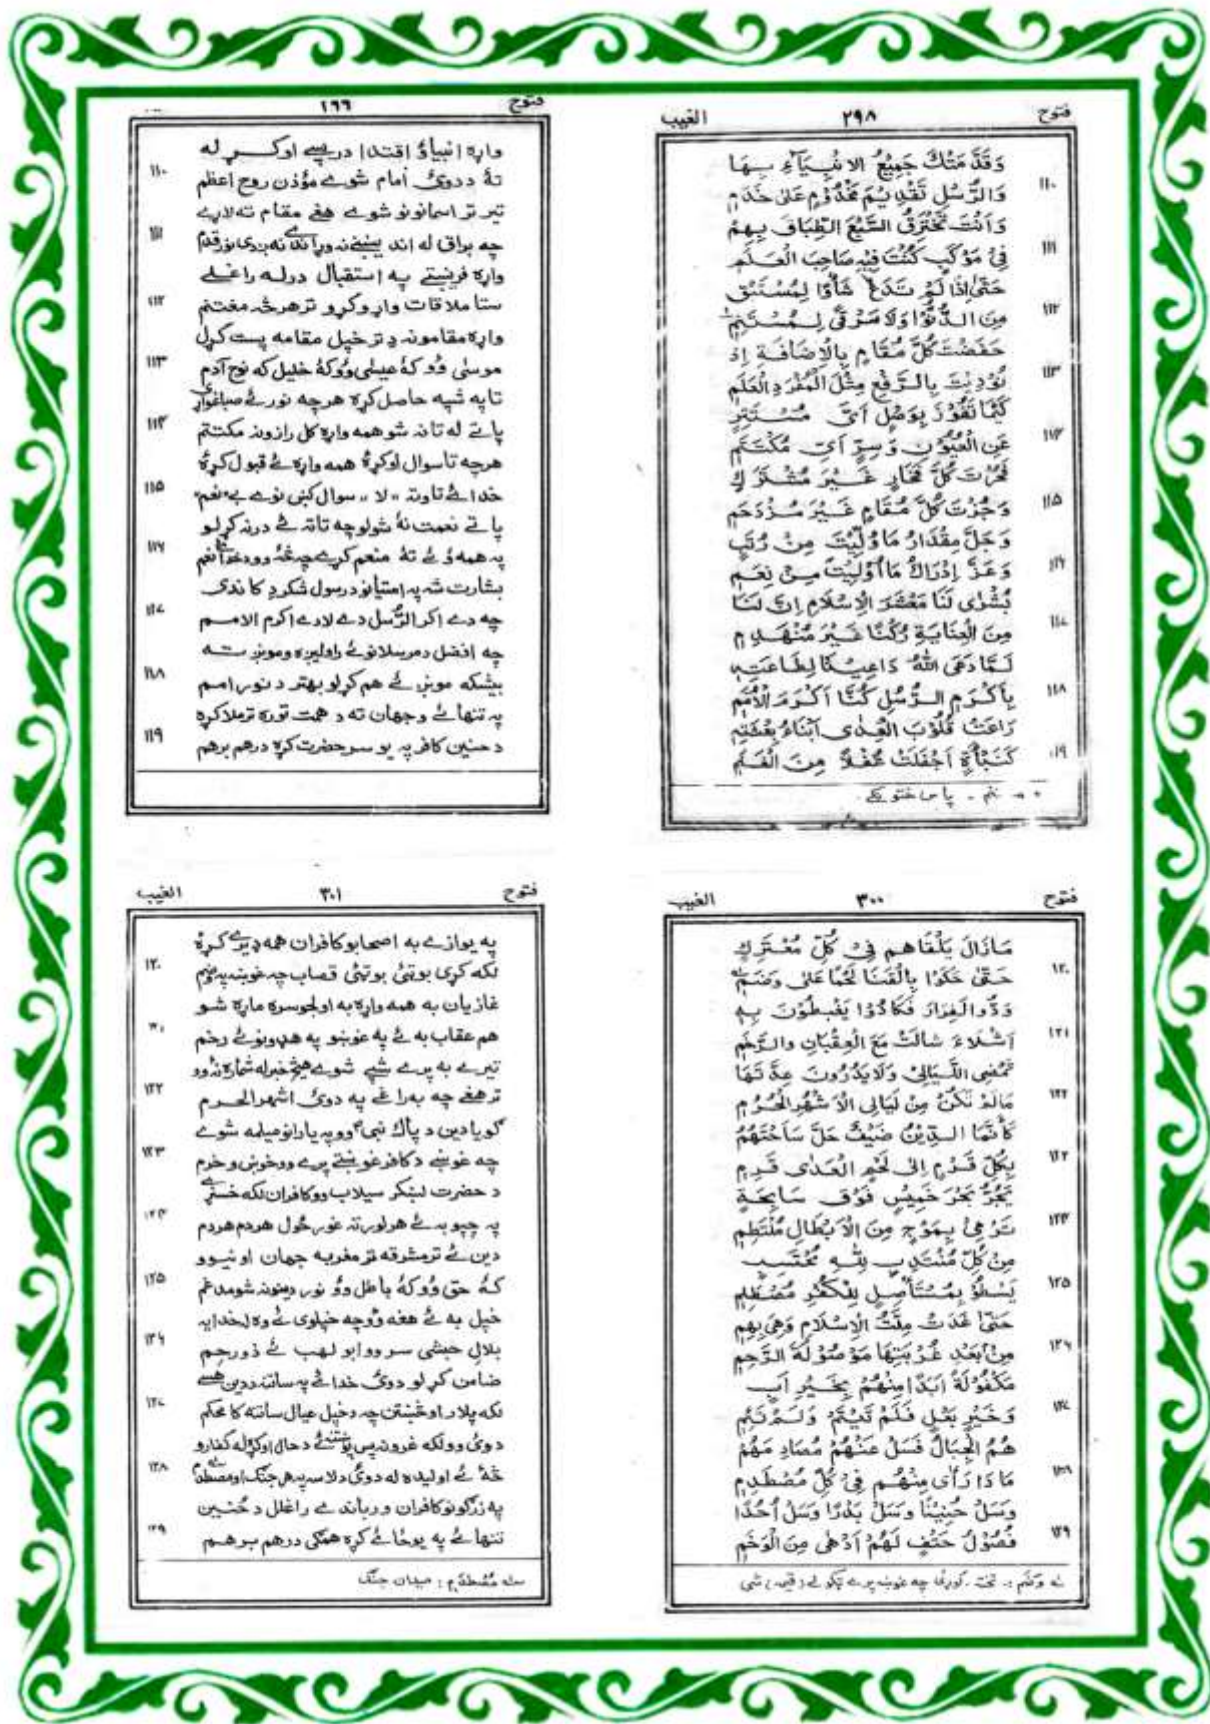 فتوح ٢٩٨ الغيب
وَقَدَّمَتْكَ جَمِيعُ الاَنْبِيَآءِ بِهَا
١١٠
وَالرُّسُلِ تَقْدِيْمَ مَخْدُوْمٍ عَلٰی خَدَمٖ
وَاَنْتَ تَخْتَرِقُ السَّبْعَ الطِّبَاقَ بِهِمْ
١١١
فِیْ مَوْكَبٍ كُنْتَ فِيْهِ صَاحِبَ الْعَلَمٖ
حَتّٰی اِذَا لَمْ تَدَعْ شَأْوًا لِمُسْتَبِقٍ
١١٢
مِنَ الدُّنُوِّ وَلَا مَرْقًی لِمُسْتَنِمٖ
خَفَضْتَ كُلَّ مَقَامٍ بِالْاِضَافَةِ اِذْ
١١٣
نُوْدِيْتَ بِالرَّفْعِ مِثْلَ الْمُفْرَدِ الْعَلَمِ
كَيْمَا تَفُوْزَ بِوَصْلٍ اَیِّ مُسْتَتِرٍ
١١٤
عَنِ الْعُيُوْنِ وَسِرٍّ اَیِّ مُكْتَتَمِ
فَحُزْتَ كُلَّ فَخَارٍ غَيْرَ مُشْتَرَكٍ
١١٥
وَجُزْتَ كُلَّ مَقَامٍ غَيْرَ مُزْدَحَمِ
وَجَلَّ مِقْدَارُ مَا وُلِّيْتَ مِنْ رُتَبٍ
١١٦
وَعَزَّ اِدْرَاكُ مَا اُوْلِيْتَ مِنْ نِعَمٖ
بُشْرٰی لَنَا مَعْشَرَ الْاِسْلَامِ اِنَّ لَنَا
١١٧
مِنَ الْعِنَايَةِ رُكْنًا غَيْرَ مُنْهَدِمٖ
لَمَّا دَعَی اللّٰهُ دَاعِيْنَا لِطَاعَتِهٖ
١١٨
بِاَكْرَمِ الرُّسُلِ كُنَّا اَكْرَمَ الْاُمَمِ
رَاعَتْ قُلُوْبَ الْعِدٰی اَنْبَاءُ بِعْثَتِهٖ
١١٩
كَنَبْأَةٍ اَجْفَلَتْ غُفْلًا مِنَ الْغَنَمِ
فتوح ١٩٩
واړه انبياؤ اقتدا درپسے اوكړله
١١٠
تهٔ ددویٔ امام شوے مؤذن روح اعظم
تير تر اسمانونو شوے هغے مقام ته لاړے
١١١
چه براق له
واړه فرښتے په استقبال درله راغلے
١١٢
ستا ملاقات واړو كړو ترهرڅه مغتنم
واړه مقامونه دِ ترخپل مقامه پست كړل
١١٣
موسٰی وُو كهٔ عيسٰی وُو كهٔ خليل كه نوح آدم
تا په شپه حاصل كړه هرچه نور ئے
١١٤
پاتے له تا نه شو همه واړه كل رازونه مكتتم
هرچه تا سوال اوكړهٔ همه واړه ئے قبول كړهٔ
١١٥
خدائے تاوته "لا" سوال كښ نوے بے "نعم"
پاتے نعمت نهٔ شولو چه تا ته ئے درنه كړلو
١١٦
په همه وُ ئے تهٔ منعم كړے چه څهٔ وو د خدائے نعم
بشارت شه په امتيانو درسول شكر دِ كاندی
١١٧
چه دے اكرم الرّسل دے لاړے اكرم الامم
چه افضل دمرسلانو ئے راوليږه ومونږ ته
١١٨
بيشكه مونږ ئے هم كړلو بهتر د نورامم
په تنهائے وجهان ته د همت توره ترملا كړه
١١٩
دحنين كافر په يو سر حضرت كړه درهم برهم
فتوح ٣٠٠ الغيب
مَازَالَ يَلْقَاهُمِ فِیْ كُلِّ مُعْتَرَكٍ
١٢٠
حَتّٰی حَكَوْا بِالْقَنَا لَحْمًا عَلٰی وَضَمٖ
وَدُّوا الْفِرَارَ فَكَادُوْا يَغْبِطُوْنَ بِهٖ
١٢١
اَشْلَاءَ شَالَتْ مَعَ الْعِقْبَانِ وَالرَّخَمِ
تَمْضِی اللَّيَالِیْ وَلَا يَدْرُوْنَ عِدَّتَهَا
١٢٢
مَالَمْ تَكُنْ مِنْ لَيَالِی الْاَشْهُرِ الْحُرُمِ
كَأَنَّمَا الدِّيْنُ ضَيْفٌ حَلَّ سَاحَتَهُمْ
١٢٣
بِكُلِّ قَرْمٍ اِلٰی لَحْمِ الْعِدٰی قَرِمٖ
يَجُرُّ بَحْرَ خَمِيْسٍ فَوْقَ سَابِحَةٍ
١٢٤
تَرْمِیْ بِمَوْجٍ مِنَ الْاَبْطَالِ مُلْتَطِمٖ
مِنْ كُلِّ مُنْتَدِبٍ لِلّٰهِ مُحْتَسِبٍ
١٢٥
يَسْطُوْ بِمُسْتَأْصِلٍ لِلْكُفْرِ مُصْطَلِمٖ
حَتّٰی غَدَتْ مِلَّةُ الْاِسْلَامِ وَهِیَ بِهِمْ
١٢٦
مِنْ بَعْدِ غُرْبَتِهَا مَوْصُوْلَةَ الرَّحِمِ
مَكْفُوْلَةً اَبَدًا مِنْهُمْ بِخَيْرِ اَبٍ
١٢٧
وَخَيْرِ بَعْلٍ فَلَمْ تَيْتَمْ وَلَمْ تَئِمٖ
هُمُ الْجِبَالُ فَسَلْ عَنْهُمْ مُصَادِمَهُمْ
١٢٨
مَاذَا رَأٰی مِنْهُمْ فِیْ كُلِّ مُصْطَدَمٖ
وَسَلْ حُنَيْنًا وَسَلْ بَدْرًا وَسَلْ اُحُدًا
١٢٩
فُصُوْلَ حَتْفٍ لَهُمْ اَدْهٰی مِنَ الْوَخَمِ
له وضم :- تخته
فتوح ٣٠١ الغيب
په يوازے به اصحابو كافران همه ډيرے كړهٔ
١٢٠
لكه كړی بوټئ بوټئ قصاب چه غوښه په
غازيان به همه واړه به اولجو سره ماړه شو
١٢١
هم عقاب به ئے په غوښو په هډوونو ئے رخم
تيرے به پرے شپے شوے هيڅ خبر له شماره نهٔ وو
١٢٢
ترهغے چه به راغے په دوئ اشهر الحرم
گويا دين د پاك نبی وو په يارانو ميلمه شوے
١٢٣
چه غوښے د كافر غوښتے پرے وو خوښ وخرم
د حضرت لښكر سيلاب وو كافران لكه
١٢٤
په چپو به ئے هر لور ته غورځول هردم هردم
دين ئے ترمشرقه تر مغربه جهان اونيوو
١٢٥
كهٔ حق وُو كهٔ باطل وؤ نور دينونه شو مدغم
خپل به ئے هغه وُو چه خپلوی ئے وه له خدايه
١٢٦
بلال حبشی سر وو ابو لهب ئے ذورحِم
ضامن كړلو دوئ خدائے په ساتنه ددين هسے
١٢٧
لكه پلار او څښتن چه دخپل عيال ساتنه كا محكم
دوئ وو لكه غرونه پس پوښتنه ئے د حال اوكړله كفارو
١٢٨
څهٔ ئے اوليده له دوئ دلاسه په هر جنگ او مصطدم
په زرگونو كافران ورباندے راغلل د حُنين
١٢٩
تنهائے په يو ځائے كړه همگی درهم برهم
سله مُصْطَدَم : ميدان جنگ